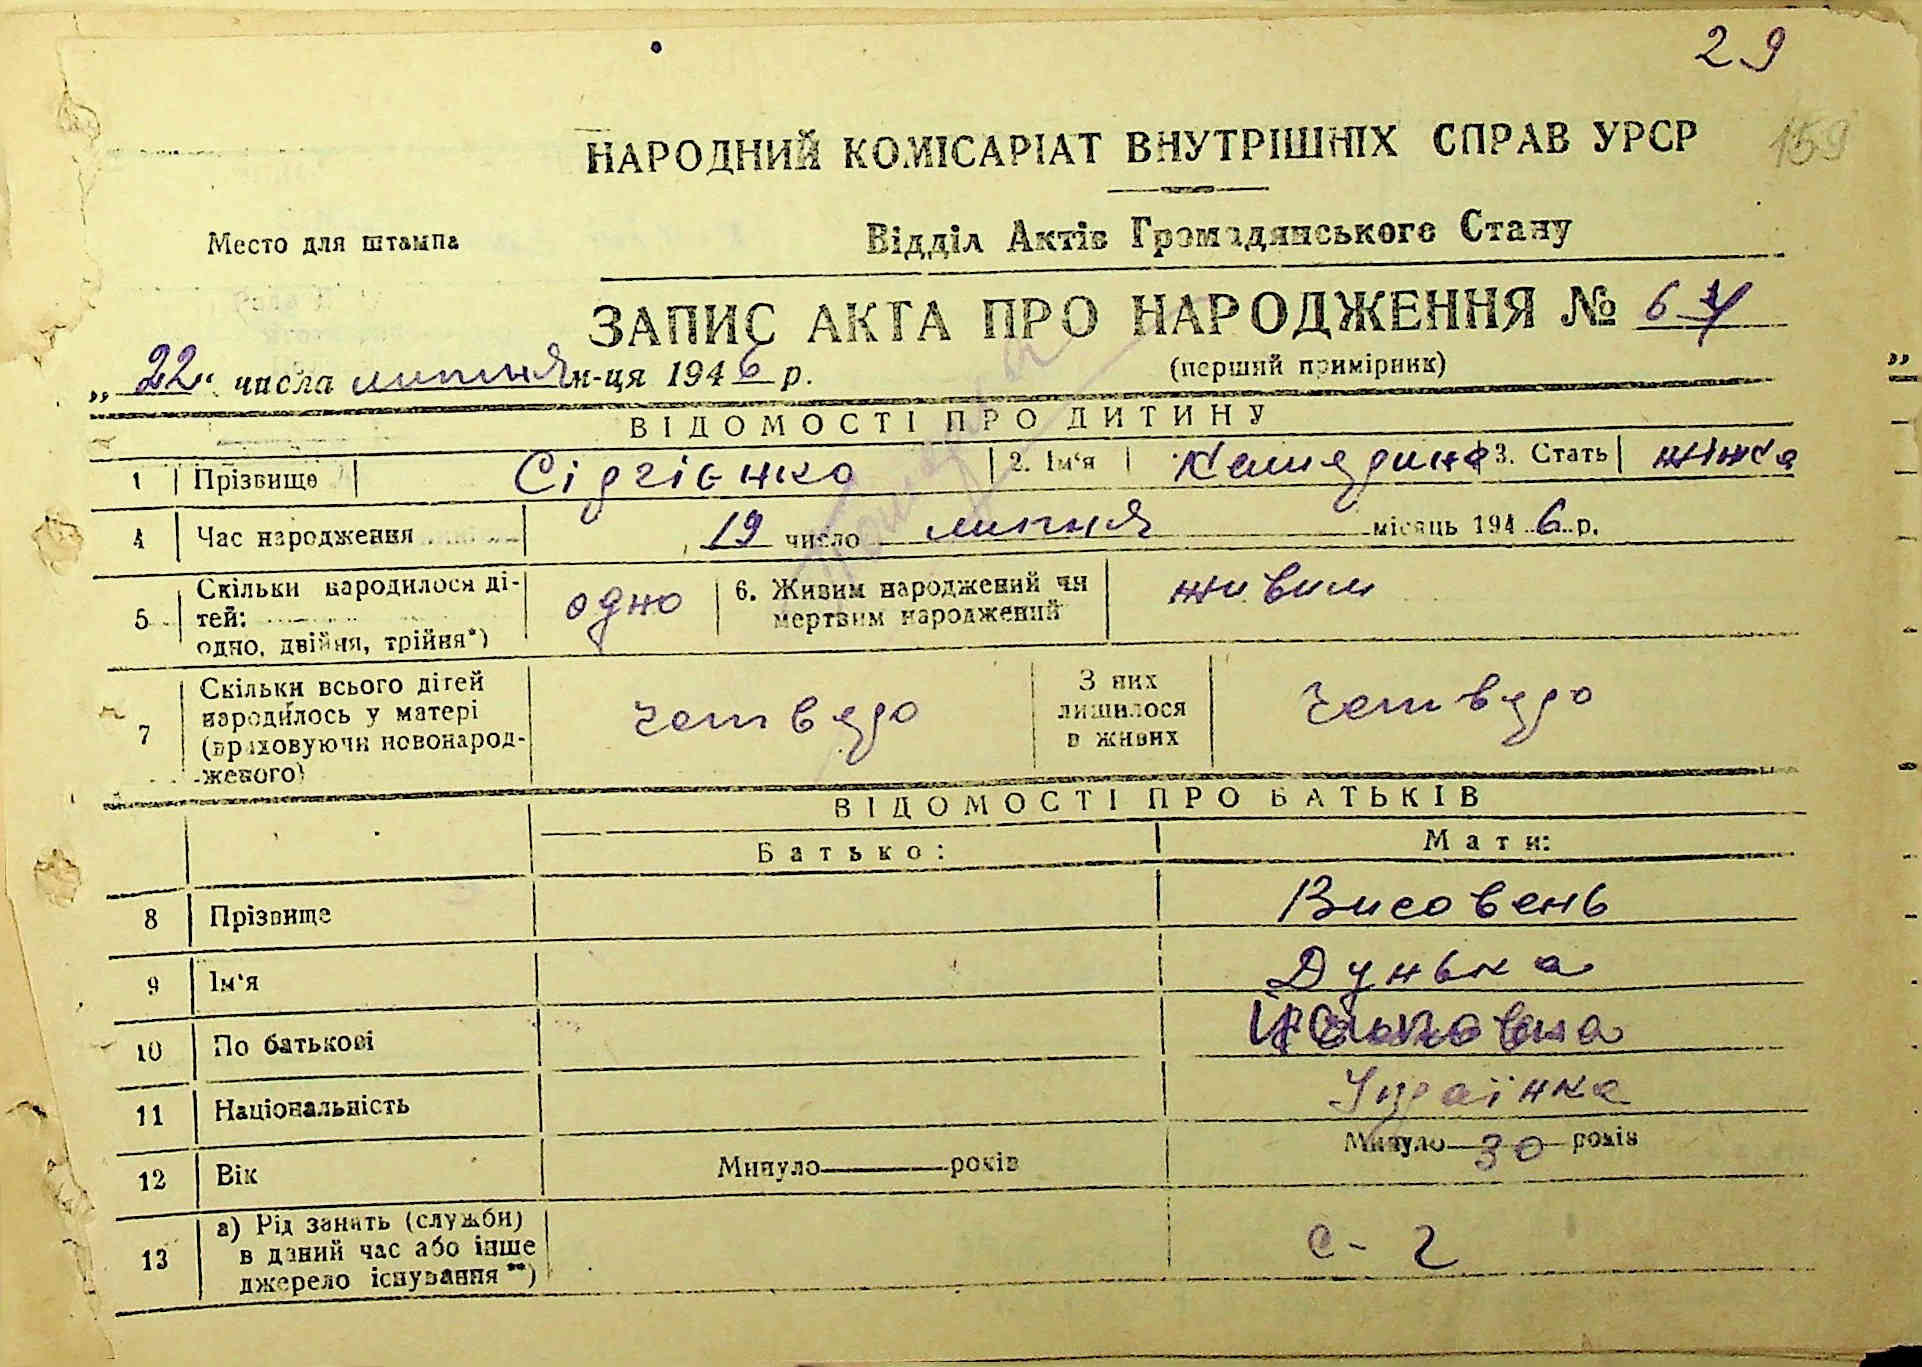 29
НАРОДНИЙ КОМІСАРІАТ ВНУТРІШНІХ СПРАВ УРСР 159
Место для штампа
Відділ Актів Громадянського Стану
ЗАПИС АКТА ПРО НАРОДЖЕННЯ №
„22“ числа липня м-ця 1946 р.
(перший примірник)
ВІДОМОСТІ ПРО ДИТИНУ
1 Прізвище 2. Ім'я 3. Стать жінка
4 Час народження 19 число липня місяць 1946 р.
5 Скільки народилося ді-
тей:
одно, двійня, трійня*) одно 6. Живим народжений чи
мертвим народжений живим
7 Скільки всього дітей
народилось у матері
(враховуючи новонарод-
женого) четвєро З них
лишилося
в живих четвєро
ВІДОМОСТІ ПРО БАТЬКІВ
Батько: Мати:
8 Прізвище Висовень
9 Ім'я Дунька
10 По батькові
11 Національність Українка
12 Вік Минуло років Минуло 30 років
13 а) Рід занять (служби)
в даний час або інше
джерело існування**) с-г